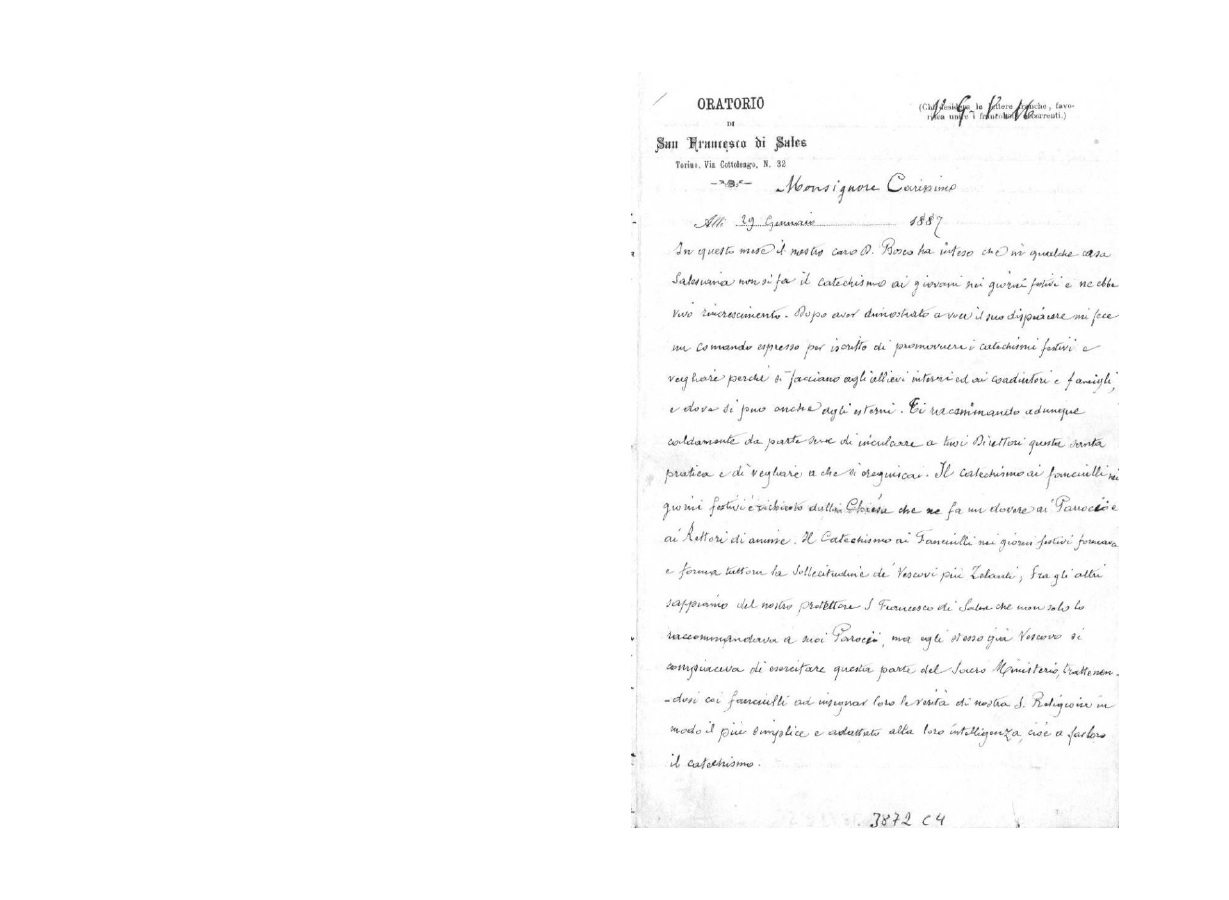 ORATORIO
DI
San Francesco di Sales
Torino, Via Cottolengo, N. 32
(Chi desidera le lettere franche, favo-
risca unire i francobolli occorrenti.)
Monsignore Carissimo
Alli 29 Gennaio 1887
In questo mese il nostro caro D. Bosco ha inteso che in qualche casa
Salesiana non si fa il catechismo ai giovani nei giorni festivi e ne ebbe
vivo rincrescimento. Dopo aver dimostrato a voce il suo dispiacere mi fece
un comando espresso per iscritto di promuovere i catechismi festivi e
vegliare perché si facciano agli allievi interni ed ai coadiutori e famigli,
e dove si può anche agli esterni. Ti raccommando adunque
caldamente da parte sua di inculcare a tuoi Direttori questa santa
pratica e di vegliare a che si eseguisca. Il catechismo ai fanciulli nei
giorni festivi è richiesto dalla Chiesa che ne fa un dovere ai Parocci e
ai Rettori di anime. Il Catechismo ai Fanciulli nei giorni festivi formava
e forma tuttora la Sollecitudine de' Vescovi più Zelanti, Fra gli altri
sappiamo del nostro protettore S Francesco di Sales che non solo lo
raccommandava a suoi Parocci, ma egli stesso già Vescovo si
compiaceva di esercitare questa parte del Sacro Ministerio, trattenen-
-dosi coi fanciulli ad insegnar loro le verità di nostra S. Religione in
modo il più simplice e adattato alla loro intelligenza, cioè a far loro
il catechismo.
3872 C4